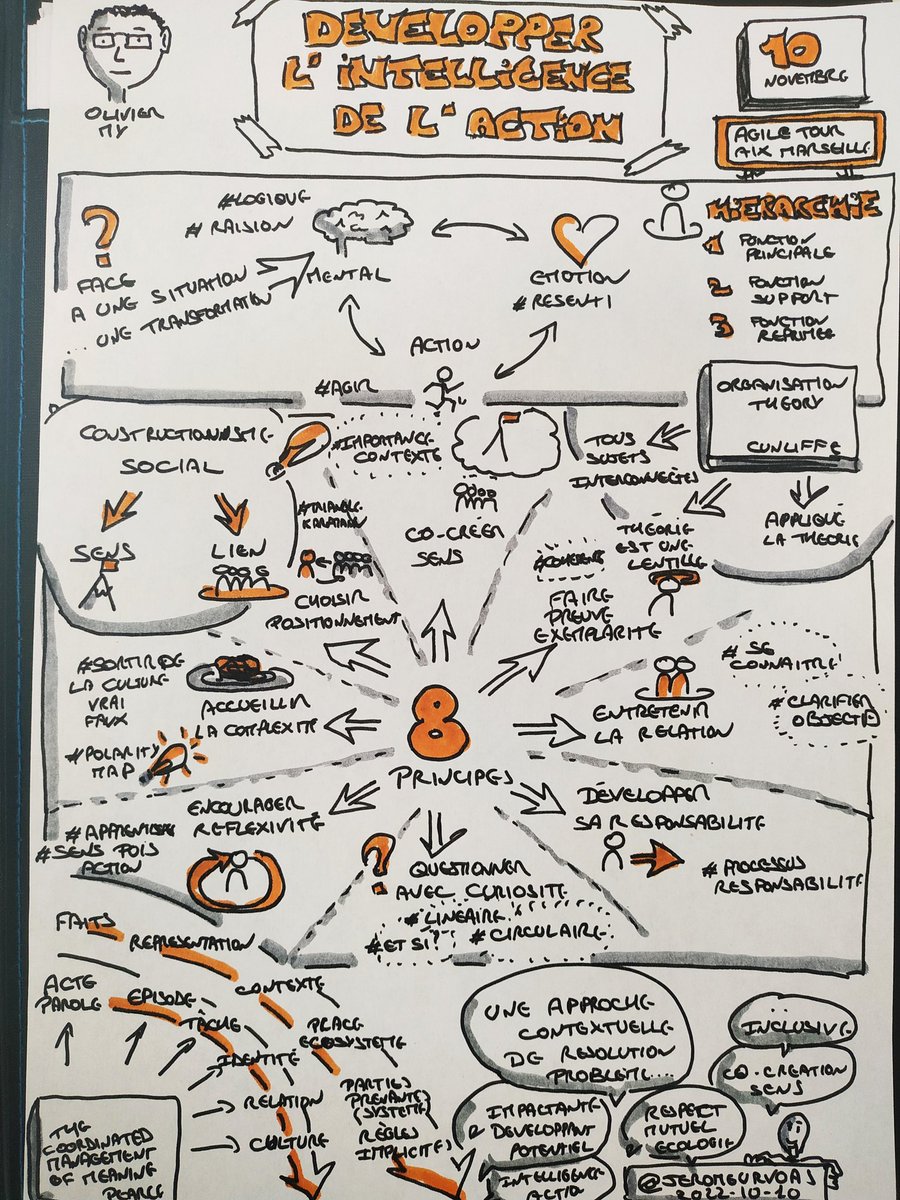 DEVELOPPER
L'INTELLIGENCE
DE L'ACTION
OLIVIER
MY
10
NOVEMBRE
AGILE TOUR
AIX MARSEILLE
?
FACE
A UNE SITUATION
... UNE TRANSFORMATION
#LOGIQUE
# RAISION
MENTAL
EMOTION
#RESENTI
ACTION
#AGIR
HIERARCHIE
1 FONCTION
PRINCIPALE
2 FONCTION
SUPPORT
3 FONCTION
REPRIMEE
ORGANISATION
THEORY
CUNLIFFE
TOUS
SUJETS
INTERCONNECTÉS
THEORIE
EST UNE
LENTILLE
APPLIQUÉ
LA THEORIE
CONSTRUCTIONNISTE
SOCIAL
SENS
LIEN
#TRIANGLE
KARPMAN
CHOISIR
POSITIONNEMENT
#IMPORTANCE
CONTEXTE
CO-CREER
SENS
#COHERENT
FAIRE
PREUVE
EXEMPLARITE
# SE
CONNAITRE
# CLARIFIER
OBJECTIF
ENTRETENIR
LA RELATION
#SORTIR DE
LA CULTURE
VRAI
FAUX
#POLARITY
MAP
ACCUEILLIR
LA COMPLEXITÉ
8
PRINCIPES
ENCOURAGER
REFLEXIVITÉ
#SENS PUIS
ACTION
?
QUESTIONNER
AVEC CURIOSITE
# LINEAIRE
#ET SI?
# CIRCULAIRE
DÉVELOPPER
SA RESPONSABILITE
# PROCESSUS
RESPONSABILITÉ
FAITS
REPRESENTATION
CONTEXTE
PLACE
ECOSYSTEME
PARTIES
PRENANTES
(SYSTEME)
RÈGLES
IMPLICITES
ACTE
PAROLE
EPISODE
TÂCHE
IDENTITÉ
RELATION
CULTURE
THE
COORDINATED
MANAGEMENT
OF MEANING
PEARCE
UNE APPROCHE
CONTEXTUELLE
DE RESOLUTION
PROBLEME...
INCLUSIVE
CO-CREATION
SENS
IMPACTANTE
DEVELOPPANT
POTENTIEL
RESPECT
MUTUEL
ECOLOGIE
INTELLIGENCE
ACTION
@JEROMEURVOAS
2022-10-10